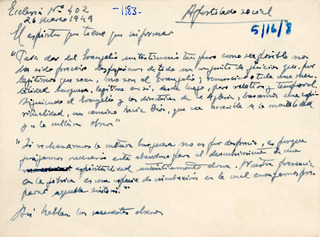 Ecclesia Nº 402 -1183- Apostolado social
26 marzo 1949 5/16/8
El espíritu que tiene que informar
"Para dar el Evangelio auténticamente tan puro como sea posible nos
ha sido preciso despojarnos de todo un conjunto de juicios que, por
legítimos que sean, no son el Evangelio; renunciar a toda una men-
talidad burguesa, legítima en sí, desde luego, pero relativa y temporal.
Siguiendo el Evangelio y las directivas de la Iglesia, buscamos una espi-
ritualidad, un camino hacia Dios, que sea accesible a la mentalidad
y a la cultura obrera"
"Si rechazamos la cultura burguesa no es por desprecio, es porque
juzgamos necesario este abandono para el descubrimiento de una
espiritualidad auténticamente obrera. Nuestra presencia
en la fábrica es una especie de
para el
Así hablan los sacerdotes obreros